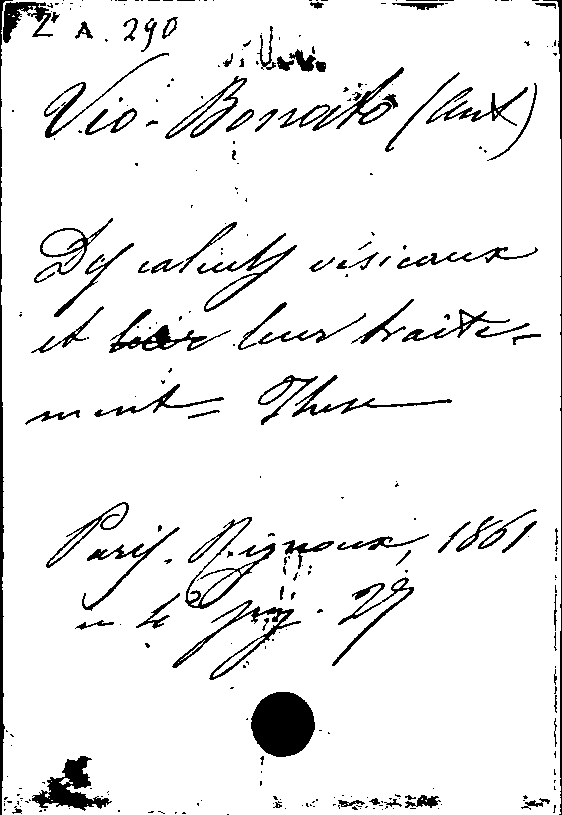 Z A. 290
Vio-Bonato (Ant)
Des calculs vésicaux
et leur traite-
ment - These
Paris. Rignoux, 1861
in 4° 29